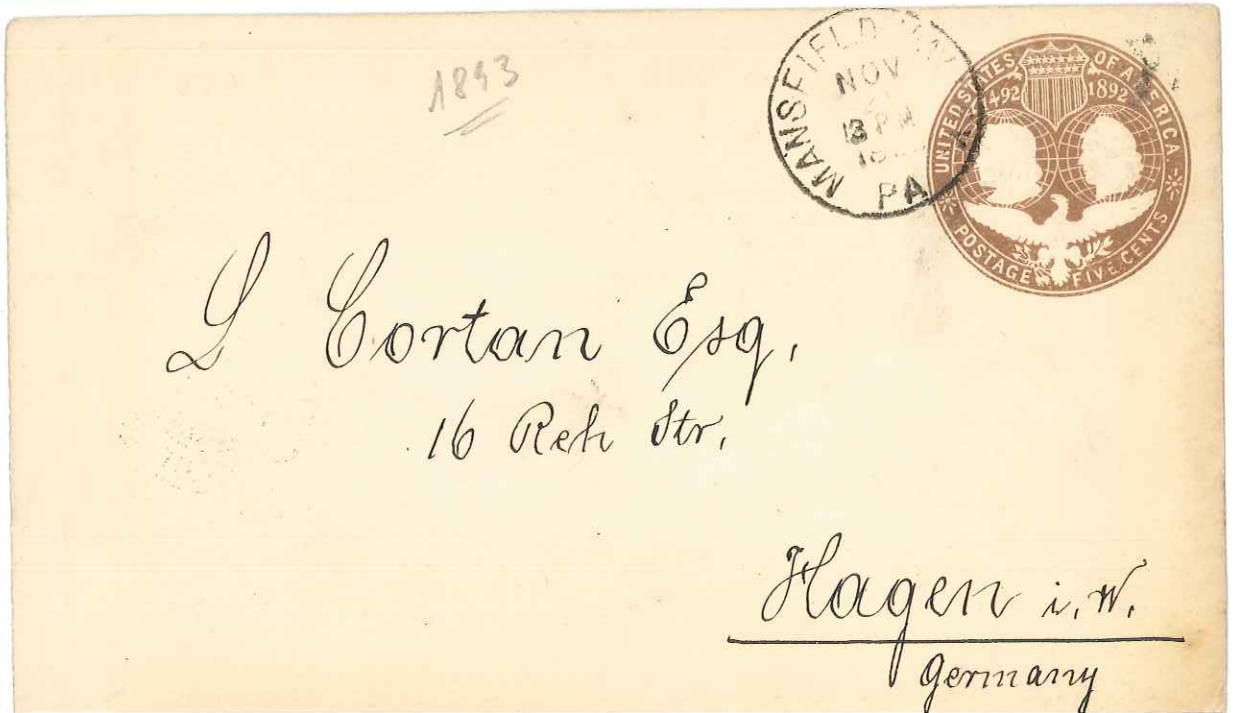 1893
MANSFIELD
NOV
PM
PA
UNITED STATES OF AMERICA
1492 1892
POSTAGE FIVE CENTS
L Cortan Esq.
16 Reh Str.
Hagen i. W.
Germany